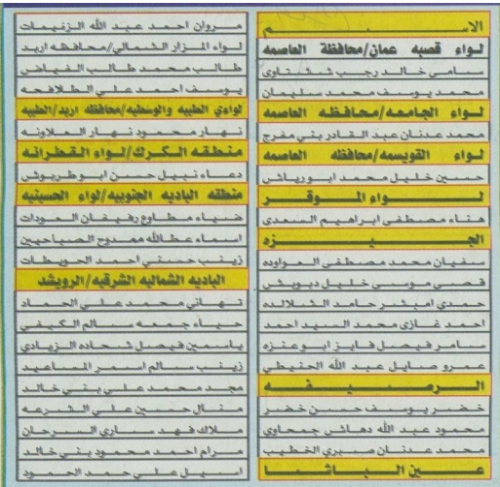 الاسم
لواء قصبه عمان/محافظة العاصمه
سامي خالد رجب ششتاوي
محمد يوسف محمد سليمان
لواء الجامعه/محافظه العاصمه
محمد عدنان عبد القادر بني مفرج
لواء القويسمه/محافظه العاصمه
حسين خليل محمد ابورياش
لواء الموقر
هناء مصطفى ابراهيم السعدي
الجيزه
سفيان محمد مصطفى العراوده
قصي موسى خليل درويش
حمدي امبشر حامد الشلالده
احمد غازي محمد السيد احمد
سامر فيصل فايز ابو عنزه
عمرو صايل عبد الله الحنيطي
الرصيفه
خضر يوسف حسن خضر
محمود عبد الله دهاش جمحاوي
محمد عدنان صبري الخطيب
عين الباشا
مروان احمد عبد الله الزنيمات
لواء المزار الشمالي/محافظه اربد
طالب محمد طالب الفياض
يوسف احمد علي الطلافحه
لوائي الطيبه والوسطيه/محافظه اربد/الطيبه
نهار محمود نهار العلاونه
منطقه الكرك/لواء القطرانه
دعاء نبيل حسن ابو طربوش
منطقه الباديه الجنوبيه/لواء الحسينيه
ضياء مطاوع رفيفان العودات
اسماء عطالله ممدوح الصباحيين
زينب حسني احمد الحويطات
الباديه الشماليه الشرقيه/الرويشد
تهاني محمد علي الحماد
حياه جمعه سالم الكيفي
ياسمين فيصل شحاده الزيادي
زينب سالم اسمر المساعيد
مجد محمد علي بني خالد
منال حسين علي الشرعه
ملاك فهد ساري السرحان
مرام احمد محمود بني خالد
اسيل علي حمد الحمود